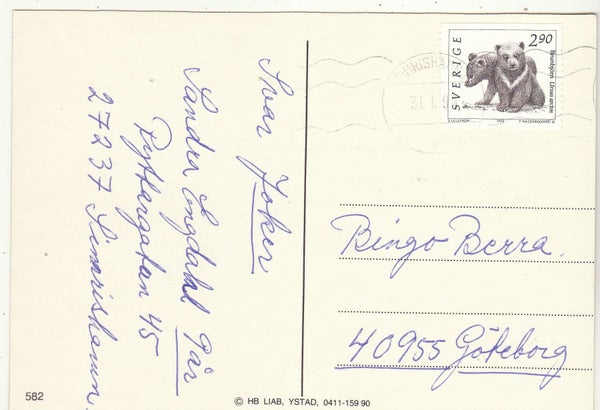 Svar Joker
Sandra Engdahl 9år
Ryttargatan 45
27237 Simrishamn.
SVERIGE
2.90
Brunbjörn Ursus arctos
31.1.9
Bingo Berra.
40955 Göteborg
582
© HB LIAB, YSTAD, 0411-159 90